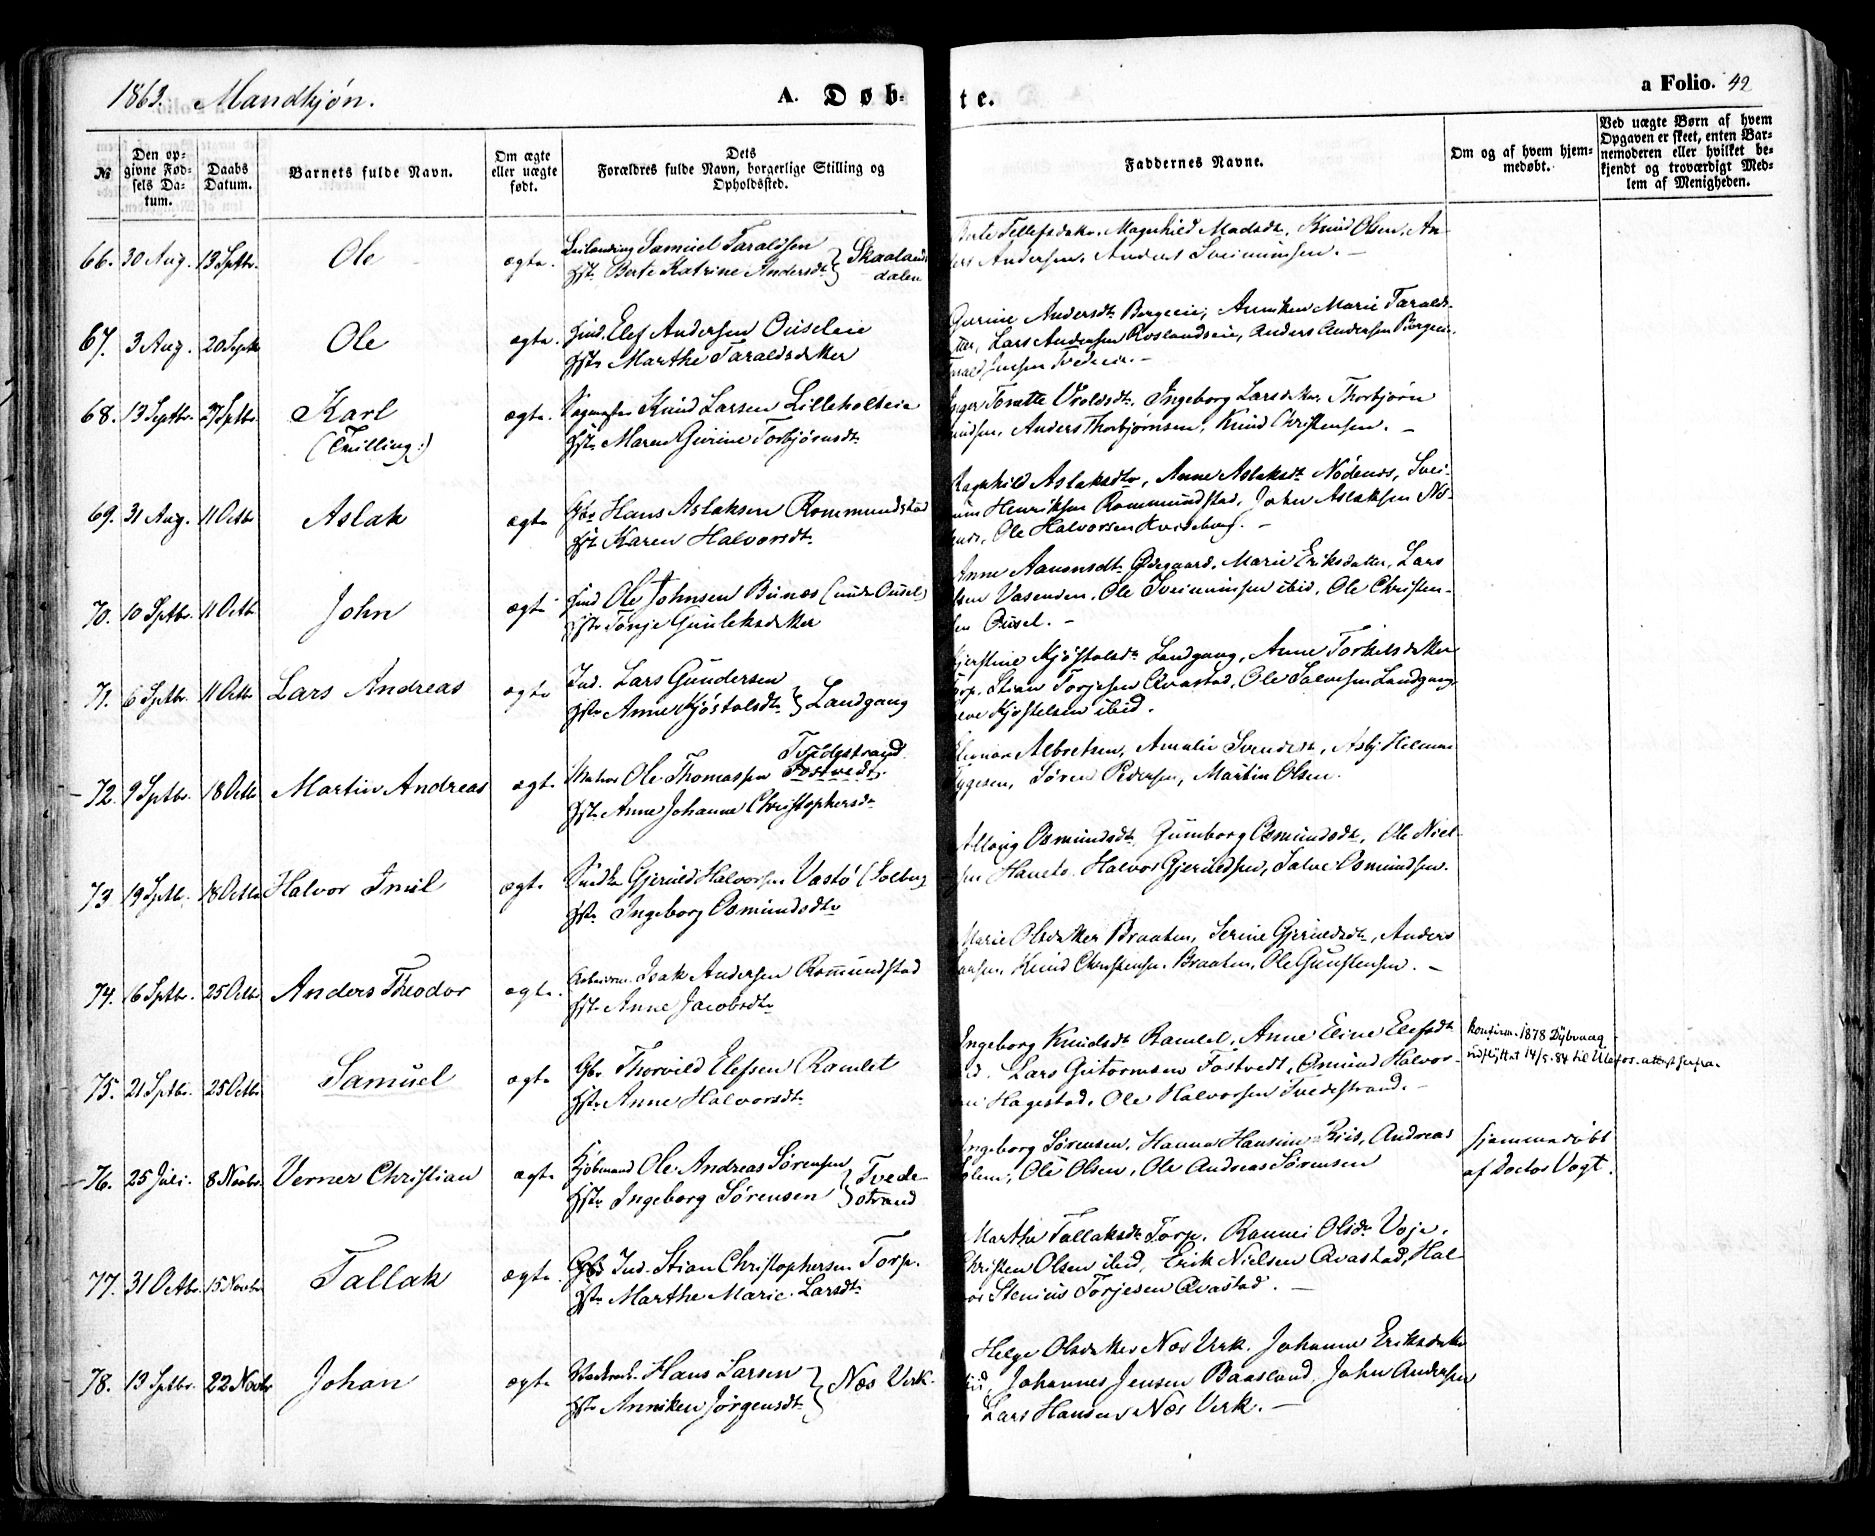 1863. Mandkjøn.
A. Døb-
te.
a Folio. 42
№
Den op-
givne Fød-
sels Da-
tum.
Daabs
Datum.
Barnets fulde Navn.
Om ægte
eller uægte
født.
Dets
Forældres fulde Navn, borgerlige Stilling og
Opholdssted.
Faddernes Navne.
Om og af hvem hjem-
medøbt.
Ved uægte Børn af hvem
Opgaven er skeet, enten Bar-
nemoderen eller hvilket be-
kjendt og troværdigt Med-
lem af Menigheden.
66. 30 Aug. 13 Septbr. Ole ægte. Samuel Taraldsen
Hstr Berte Katrine Andersdtr
Skaalands
dalen
Tellefsdatter, Magnhild Madsdtr, Knud Olsen, An-
ders Andersen, Anders
67. 3 Aug. 20 Septbr Ole ægte. Elef Andersen
Hstr Marthe Taraldsdatter
Gurine Andersdtr Anniken Marie Taralds-
datter, Lars Andersen Roslandseie, Anders Andersen
68. 13 Septbr. 27 Septbr Karl
(Tvilling:)
ægte. Knud Larsen Lilleholteie
Hstr Maren Gurine Torbjørnsdtr
Inger Tomette Ingeborg Larsdatter, Thorbjørn
Knudsen, Anders Thorbjørnsen, Knud Christensen. –
69. 31 Aug. 11 Octbr Aslak ægte Gbr Hans Aslaksen Rommundstad
Hstr Karen Halvorsdtr
Ragnhild Aslaksdtr, Anne Aslaksdtr Nødenes, Svei-
num Henriksen Rommundstad, John Aslaksen Nø-
denes, Ole Halvorsen –
70. 10 Septbr. 11 Octbr John ægte Ind Ole Johnsen Bunæs (under Ousel)
Hstr Tonje Gunleksdatter
Anne Aanonsdtr Ødegaard, Marie Eriksdatter, Lars
Olsen Vasenden, Ole Sveinungsen ibid, Ole Christen-
sen Ousel. –
71. 6 Septbr. 11 Octbr Lars Andreas ægte Ind. Lars Gundersen
Hstr Anne Kjøstolsdtr
Landgang
Kjerstine Kjøstolsdtr Landgang, Anne Torkelsdatter
Torp, Stian Torjesen Qvastad, Ole Salvesen Landgang
Kjøstelsen ibid.
72. 9 Septbr. 18 Octbr Martin Andreas ægte Matros Ole Thomassen Tvedestrand
Fostvedt.
Hstr Anne Johanne Christophersdtr
Albretsen, Amalie Svendsdtr,
Søren Pedersen, Martin Olsen.
73. 19 Septbr. 18 Octbr Halvor Emil ægte Gjeruld Halvorsen Vastø (Solberg
Hstr Ingeborg Osmundsdtr
Osmundsdtr, Gumborg Osmundsdtr, Ole Niel-
sen Haneto, Halvor Gjeruldsen, Salve Osmundsen.
74. 16 Septbr. 25 Octbr Anders Theodor ægte. Arbeidsm. Isak Andersen Rommundstad
Hstr Anne Jacobsdtr
Marie Olsdatter Braaten, Serine Gjeruldsdtr, Anders
Larsen, Knud Christensen Braaten, Ole Gunstensen. –
75. 21 Septbr. 25 Octbr. Samuel ægte Gbr Thorvild Elefsen Ramlet
Hstr Anne Halvorsdtr
Ingeborg Knudsdtr Ramlet, Anne Eline Elefsdtr
ibid. Lars Guttormsen Fostvedt, Osmund Halvor-
sen Hagestad, Ole Halvorsen Tvedestrand. –
Konfirm. 1878 Dybvaag
udflyttet 14/5.84 til Ulefos. attest herfra.
76. 25 Juli. 8 Novbr. Verner Christian ægte Kjøbmand Ole Andreas Sørensen
Hstr Ingeborg Sørensen
Tvede-
strand
Ingeborg Sørensen, Hanna Hansine Riis, Andreas
Ole Olsen, Ole Andreas Sørensen
hjemmedøbt
af Doctor Vogt.
77. 31 Octbr. 15 Novbr. Tallak ægte. Ind. Stian Christophersen Torp.
Hstr Marthe Marie Larsdtr
Marthe Tallaksdtr Torp, Ranni Olsdtr Voje,
Christen Olsen ibid, Erik Nielsen Qvastad, Hal-
vor Stenius Torjesen Qvastad. –
78. 13 Septbr. 22 Novbr Johan ægte Hans Larsen
Hstr Anniken Jørgensdtr
Næs Verk.
Helge Olsdatter Næs Verk, Johanne Eriksdatter
ibid, Johannes Jensen Baasland, John Andersen
Lars Hansen Næs Verk. –